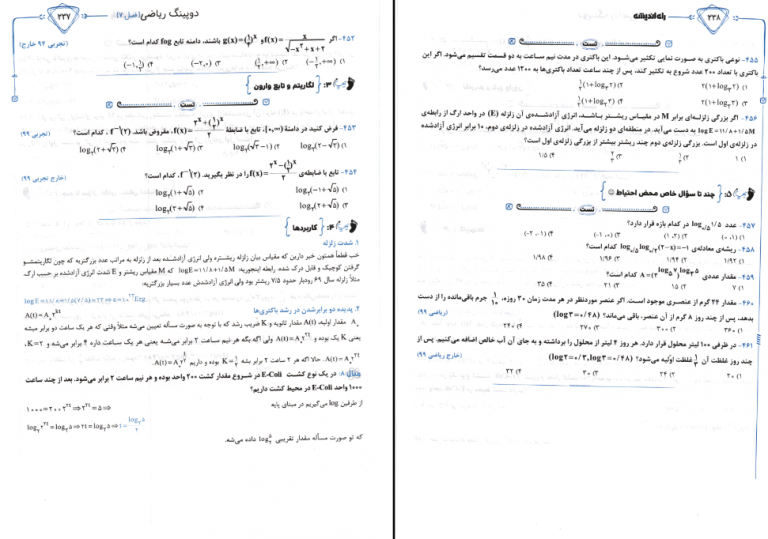 ۲۳۷
دوپینگ ریاضی (فصل ۷)
۴۵۲- اگر f(x)=x/√(-x²+x+2) و g(x)=(1/2)^x باشند، دامنه تابع fog کدام است؟ (تجربی ۹۴ خارج)
۱) (-۱,+∞)
۳: لگاریتم و تابع وارون
تست
۴۵۳- فرض کنید در دامنهٔ [۰,∞)، تابع با ضابطهٔ f(x)= مفروض باشد. f⁻¹(۲)، کدام است؟ (تجربی ۹۹)
۱) log₂(۲-√۳) ۲) log₂(√۳-۱) ۳) log₂(۱+√۳) ۴) log₂(۲+√۳)
۴۵۴- تابع با ضابطه‌ی f(x)= را در نظر بگیرید. f⁻¹(۲)، کدام است؟ (خارج تجربی ۹۹)
۱) log₂(-۱+√۵) ۲) log₂(۱+√۵)
۳) log₂(۲+√۵) ۴) log₂(۳+√۵)
۴: کاربردها
۱. شدت زلزله
خب قطعاً همتون خبر دارین که مقیاس بیان زلزله ریشتره ولی انرژی آزادشده بعد از زلزله به مراتب عدد بزرگتریه که چون لگاریتمشو
گرفتن کوچیک و قابل درک شده. رابطه اینجوریه: logE=۱۱/۸+۱/۵M که M مقیاس ریشتر و E شدت انرژی آزادشده بر حسب ارگ.
مثلاً زلزله سال ۶۹ رودبار حدود ۷/۵ ریشتر بود ولی انرژی آزادشدش عدد بسیار بزرگتریه:
۲. پدیده دو برابرشدن در رشد باکتری‌ها
مقدار اولیه، A(t) مقدار ثانویه و K ضریب رشد که با توجه به صورت مسأله تعیین می‌شه مثلاً وقتی که هر یک ساعت دو برابر میشه
یعنی K یک بوده و ولی اگه بگه هر نیم ساعت ۲ برابر می‌شه یعنی هر یک ساعت داره ۴ برابر می‌شه و K=۲،
حالا اگه هر ۲ ساعت ۲ برابر بشه K=۱/۲ بوده و داریم
مثال ۸: در یک نوع کشت E-Coli در شروع مقدار کشت ۲۰۰ واحد بوده و هر نیم ساعت ۲ برابر می‌شود. بعد از چند ساعت
۱۰۰۰ واحد E-Coli در محیط کشت داریم؟
۱۰۰۰=۲۰۰×۲^۲ᵗ⇒۲^۲ᵗ=۵⇒ از طرفین log می‌گیریم در مبنای پایه
log₂۲^۲ᵗ=log₂۵⇒۲t=log₂۵⇒t=log₂۵/۲
که تو صورت مسأله مقدار تقریبی log₂۵ داده می‌شه.
۲۳۸
راه اندیشه
تست
۴۵۵- نوعی باکتری به صورت نمایی تکثیر می‌شود. این باکتری در مدت نیم ساعت به دو قسمت تقسیم می‌شود. اگر این
باکتری با تعداد ۲۰۰ عدد شروع به تکثیر کند، پس از چند ساعت تعداد باکتری‌ها به ۱۲۰۰ عدد می‌رسد؟
۴۵۶- اگر بزرگی زلزله‌ای برابر M در مقیاس ریشتر باشد، انرژی آزادشده‌ی آن زلزله (E) در واحد ارگ از رابطه‌ی
logE=۱۱/۸+۱/۵M به دست می‌آید. در منطقه‌ای دو زلزله می‌آید. انرژی آزادشده در زلزله‌ی دوم، ۱۰ برابر انرژی آزادشده
در زلزله‌ی اول است. بزرگی زلزله‌ی دوم چند ریشتر بیشتر از بزرگی زلزله‌ی اول است؟
۱) ۱ ۲) ۱/۲ ۳) ۲/۳ ۴) ۱/۵
۵: چند تا سؤال خاص محض احتیاط
تست
۴۵۷- عدد log₀/₅۱/۵ در کدام بازه قرار دارد؟
۱) (۰,۱) ۲) (۱,۲) ۳) (-۱,۰) ۴) (-۲,-۱)
۴۵۸- ریشه‌ی معادله‌ی log₀/₅log₀/₂(۲-x)=-۱ کدام است؟
۱) ۱/۹۲ ۲) ۱/۹۴ ۳) ۱/۹۶ ۴) ۱/۹۸
۴۵۹- مقدار عددی کدام است؟
۱) ۷ ۲) ۱۵ ۳) ۲۱ ۴) ۳۵
۴۶۰- مقدار ۲۴ گرم از عنصری موجود است. اگر عنصر موردنظر در هر مدت زمان ۳۰ روزه، ۱/۱۰ جرم باقی‌مانده را از دست
بدهد، پس از چند روز ۸ گرم از آن عنصر، باقی می‌ماند؟ (log۳=۰/۴۸) (ریاضی ۹۹)
۱) ۳۶۰ ۲) ۳۰۰ ۳) ۲۷۰ ۴) ۲۴۰
۴۶۱- در ظرفی ۱۰۰ لیتر محلول قرار دارد. هر روز ۴ لیتر از محلول را برداشته و به جای آن آب خالص اضافه می‌کنیم. پس از
چند روز غلظت آن ۱/۳ غلظت اولیه می‌شود؟ (log۲=۰/۳,log۳=۰/۴۸) (خارج ریاضی ۹۹)
۱) ۲۰ ۲) ۲۴ ۳) ۳۰ ۴) ۳۲